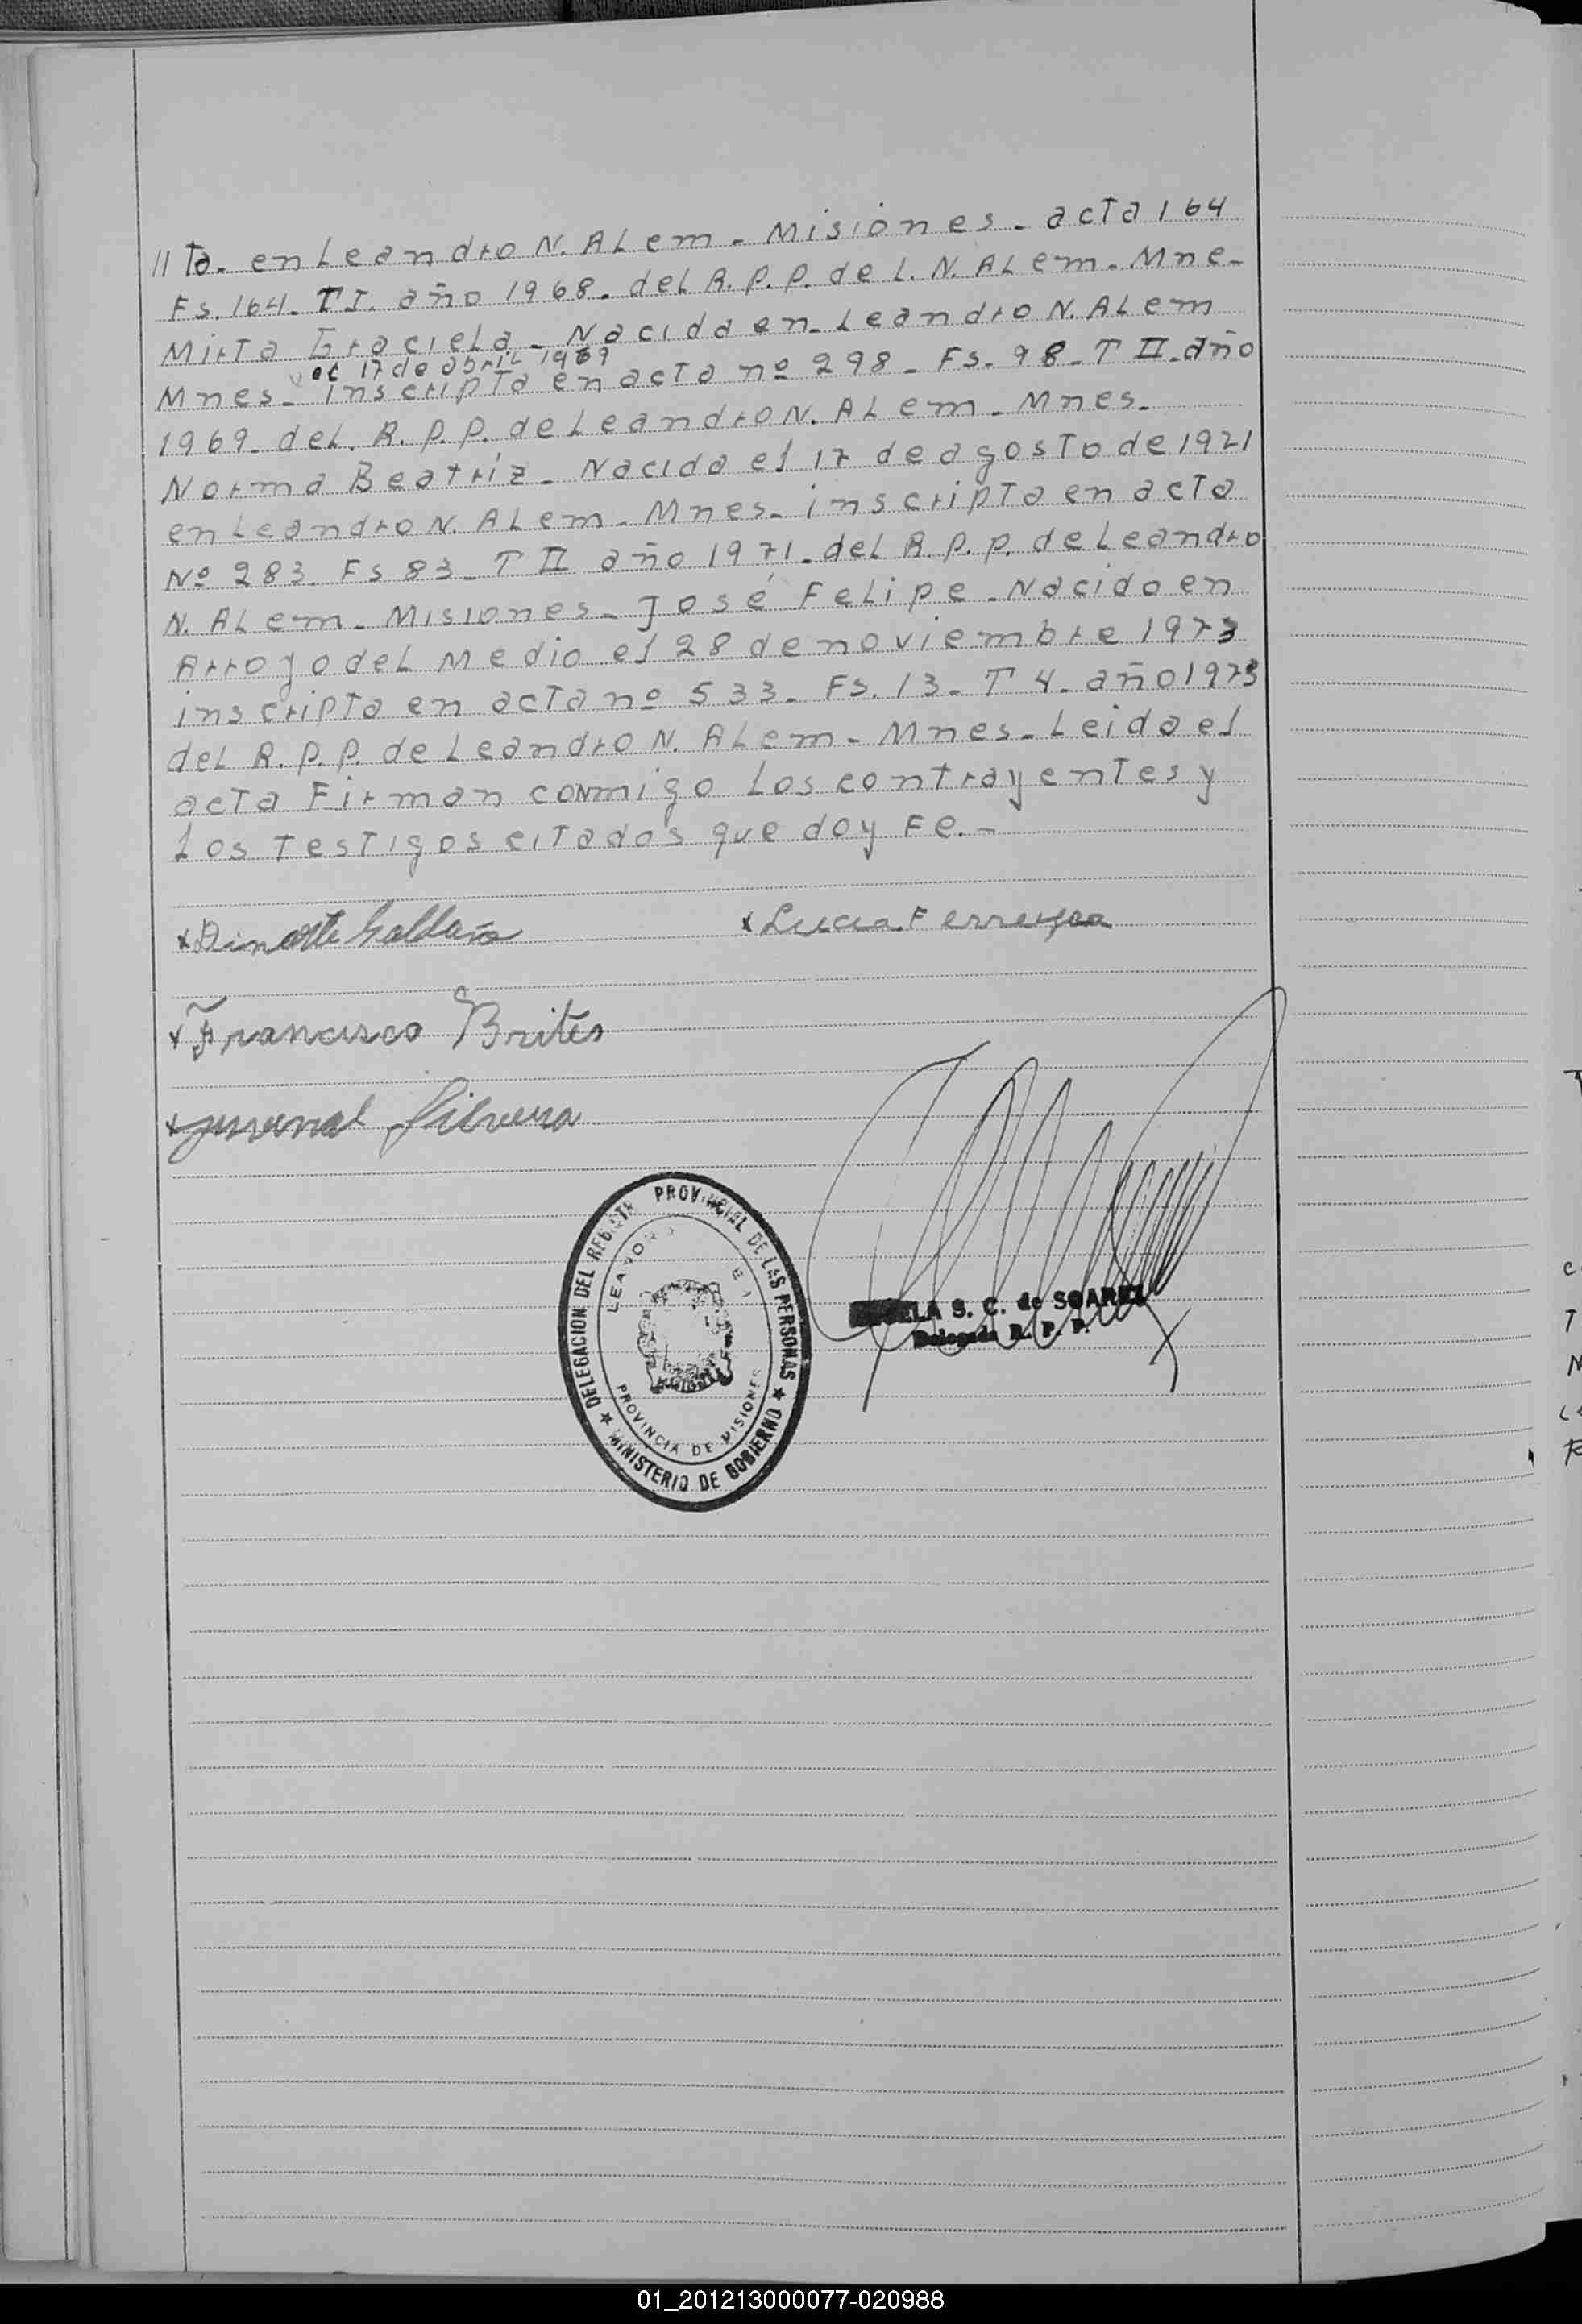 // To. en Leandro N. ALem - Misiones - acta 164
Fs. 164 - T I. año 1968. del R. P. P. de L. N. ALem - Mne-
Mirta Graciela - Nacida en Leandro N. ALem
el 17 de abril 1969
Mnes - inscripta en acta nº 298 - Fs - 98 - T II - año
1969 - del. R. P. P. de Leandro N. ALem - Mnes -
Norma Beatriz - Nacida el 17 de agosto de 1971
en Leandro N. ALem - Mnes - inscripta en acta
Nº 283. Fs 83 - T II año 1971 - del R. P. P. de Leandro
N. ALem - Misiones - José Felipe - Nacido en
Arroyo del Medio el 28 de noviembre 1973
inscripta en acta nº 533 - Fs. 13 - T 4 - año 1973
del R. P. P. de Leandro N. ALem - Mnes - Leida el
acta Firman conmigo Los contrayentes y
Los Testigos citados que doy Fe. -
x Dinarte x Lucia Ferreyra
x Francisco Brites
x Juvenal Silveira
DELEGACION DEL REGISTR PROVINCIAL DE LAS PERSONAS
LEANDRO
PROVINCIA DE MISIONES
★ MINISTERIO DE GOBIERNO ★
S. C. de SOAREZ
Delegada R. P. P.
01_201213000077-020988